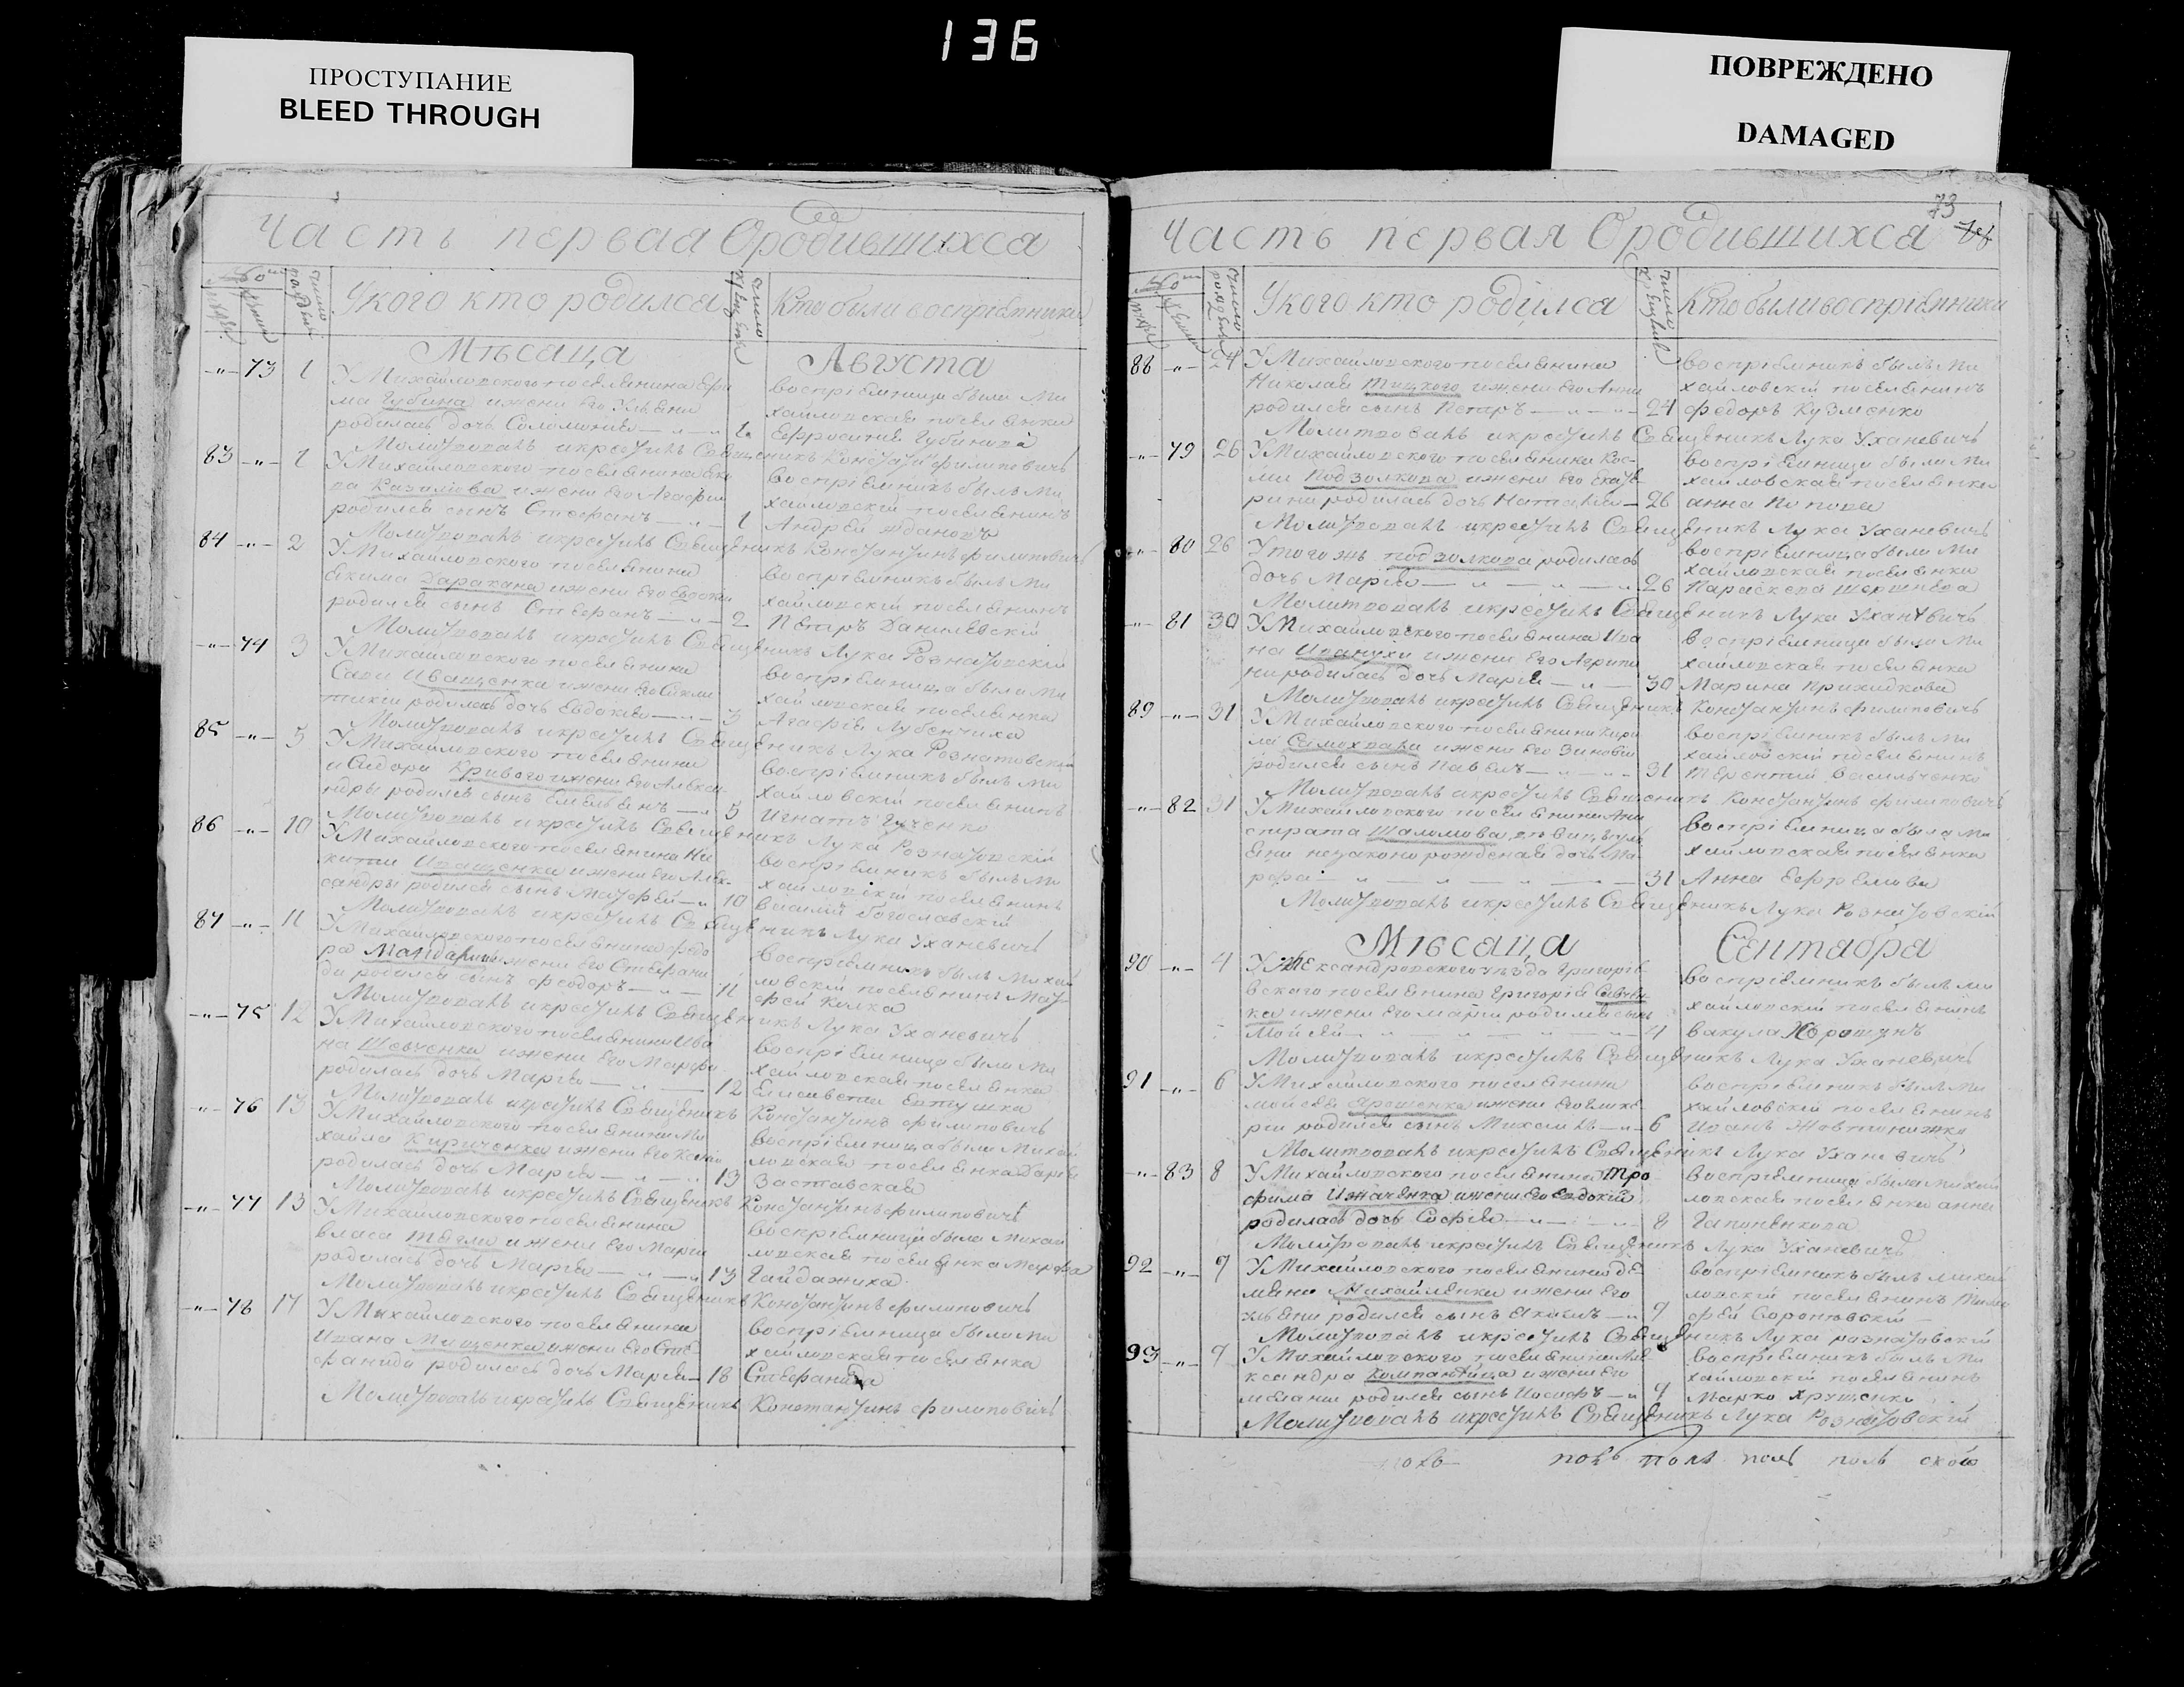 136
ПРОСТУПАНИЕ
BLEED THROUGH
ПОВРЕЖДЕНО
DAMAGED
Часть первая О родившихся
У кого кто родился
Кто были воспріемники
Мѣсяца Августа
73 1 У Михайловского поселянина Ефи
ма Губина и жени его Ульяни
родилась дочь Соломонія 1
воспріемница была Ми
хайловская поселянка
Ефросинія Губинова
Молитвовалъ и крестилъ Священикъ Константинъ Филиповичъ
83 1 У Михайловского поселянина
и жени его Агафіи
родился сынъ Стефанъ 1
воспріемникъ былъ Ми
хайловскій поселянинъ
Андрей Ждановъ
Молитвовалъ и крестилъ Священикъ Константинъ Филиповичъ
84 2 У Михайловского поселянина
Якима Даракана и жени его Евдокіи
родился сынъ Стефанъ 2
воспріемникъ былъ Ми
хайловскій поселянинъ
Петръ Данилевскій
Молитвовалъ и крестилъ Священикъ Лука Рознатовскій
74 3 У Михайловского поселянина
Сави Иващенка и жени его
родилась дочь Евдокія 3
воспріемница была Ми
хайловская поселянка
Агафія Лубенчиха
Молитвовалъ и крестилъ Священикъ Лука Рознатовскій
85 5 У Михайловского поселянина
Исидора Кривого и жени его Алекса
ндры родился сынъ Емельянъ 5
воспріемникъ былъ Ми
хайловскій поселянинъ
Игнатъ Гученко
Молитвовалъ и крестилъ Священикъ Лука Рознатовскій
86 10 У Михайловского поселянина Ни
кити Иващенка и жени его Алек
сандры родился сынъ Матфей 10
воспріемникъ былъ Ми
хайловскій поселянинъ
Василій Богославскій
Молитвовалъ и крестилъ Священикъ Лука Уханевичъ
87 11 У Михайловского поселянина Федо
ра и жени его Стефани
ди родился сынъ Феодоръ 11
воспріемникъ былъ Михай
ловскій поселянинъ Мат
фей Колка
Молитвовалъ и крестилъ Священикъ Лука Уханевичъ
75 12 У Михайловского поселянина Ива
на Шевченка и жени его Марфи
родилась дочь Марія 12
воспріемница была Ми
хайловская поселянка
Елисавета Евтушка
Молитвовалъ и крестилъ Священикъ Константинъ Филиповичъ
76 13 У Михайловского поселянина Ми
хайла Кириченка и жени его
родилась дочь Марія 13
воспріемница была Михай
ловская поселянка Дарія
Заставская
Молитвовалъ и крестилъ Священикъ Константинъ Филиповичъ
77 13 У Михайловского поселянина
Власа и жени его Маріи
родилась дочь Марія 13
воспріемница была Михай
ловская поселянка Марфа
Гайдачиха
Молитвовалъ и крестилъ Священикъ Константинъ Филиповичъ
78 17 У Михайловского поселянина
Ивана Мищенка и жени его Сте
фаниди родилась дочь Марія 18
воспріемница была Ми
хайловская поселянка
Стефанида
Молитвовалъ и крестилъ Священикъ Константинъ Филиповичъ
73
Часть первая О родившихся
У кого кто родился
Кто были воспріемники
88 24 У Михайловского поселянина
Николая Тицкого и жени его Анни
родился сынъ Петръ 24
воспріемникъ былъ Ми
хайловскій поселянинъ
Федоръ Кузменко
Молитвовалъ и крестилъ Священикъ Лука Уханевичъ
79 26 У Михайловского поселянина Кос
ми Подволкова и жени его Екате
рини родилась дочь Наталія 26
воспріемница была Ми
хайловская поселянка
Анна Попова
Молитвовалъ и крестилъ Священикъ Лука Уханевичъ
80 26 У того жъ Подволкова родилась
дочь Марія 26
воспріемница была Ми
хайловская поселянка
Параскева Шершнева
Молитвовалъ и крестилъ Священикъ Лука Уханевичъ
81 30 У Михайловского поселянина Ива
на Иванухи и жени его Агрипи
ни родилась дочь Марія 30
воспріемница была Ми
хайловская поселянка
Марина Приходкова
Молитвовалъ и крестилъ Священикъ Константинъ Филиповичъ
89 31 У Михайловского поселянина Кири
ла Самохвала и жени его Зиновіи
родился сынъ Павелъ 31
воспріемникъ былъ Ми
хайловскій поселянинъ
Терентій Васильченко
Молитвовалъ и крестилъ Священикъ Константинъ Филиповичъ
82 31 У Михайловского поселянина
Шаломова
незаконорожденая дочь Ма
рфа 31
воспріемница была Ми
хайловская поселянка
Анна Ефремова
Молитвовалъ и крестилъ Священикъ Лука Рознатовскій
Мѣсяца Сентабра
90 4 У Александровского уѣзда Григоріе
вского поселянина Григорія Савчен
ка и жени его Маріи родился сынъ
Мойсей 4
воспріемникъ былъ Ми
хайловскій поселянинъ
Вакула Коротунъ
Молитвовалъ и крестилъ Священикъ Лука Уханевичъ
91 6 У Михайловского поселянина
Мойсея Ярошенка и жени его Глике
ріи родился сынъ Михаилъ 6
воспріемникъ былъ Ми
хайловскій поселянинъ
Иванъ Жовтоножко
Молитвовалъ и крестилъ Священикъ Лука Уханевичъ
83 8 У Михайловского поселянина Тро
фима Ижаченка и жени его Евдокіи
родилась дочь Софія 8
воспріемница была Михай
ловская поселянка Анна
Гапоненкова
Молитвовалъ и крестилъ Священикъ Лука Уханевичъ
92 9 У Михайловского поселянина Де
мяна Михайленка и жени его
Ульяни родился сынъ 9
воспріемникъ былъ Михай
ловскій поселянинъ Тимо
фей Саротовскій
Молитвовалъ и крестилъ Священикъ Лука Рознатовскій
93 9 У Михайловского поселянина Але
ксандра Компанѣйца и жени его
Меланіи родился сынъ Иосифъ 9
воспріемникъ былъ Ми
хайловскій поселянинъ
Марко Хрущенко
Молитвовалъ и крестилъ Священикъ Лука Рознатовскій